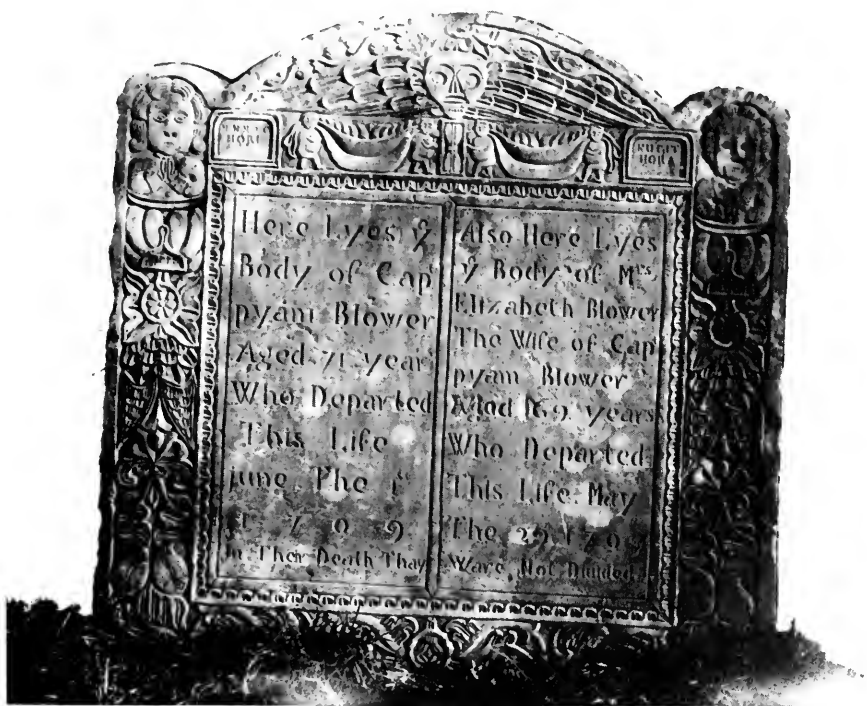 FUGIT
HORA
Here Lyes yͤ
Body of Capᵗ
pyam Blower
Aged 71 year
Who Departed
This Life
june The 1ˢᵗ
1709
In Ther Death Thay
Also Here Lyes
yͤ Body of Mʳˢ
Elizabeth Blower
The Wife of Capᵗ
pyam Blower
69 years
Who Departed
This Life May
The 29
Ware Not Diuided